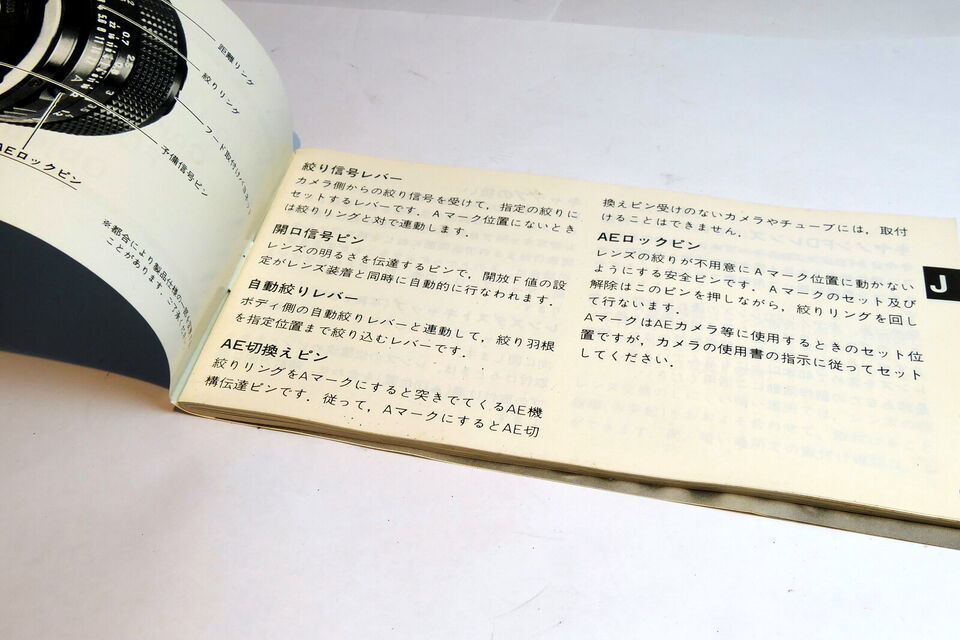 距離リング
絞りリング
フード取付け
予備信号ピン
AEロックピン
※都合により製品仕様の一部
ことがあります。ご了承
絞り信号レバー
カメラ側からの絞り信号を受けて，指定の絞りに
セットするレバーです．Aマーク位置にないとき
は絞りリングと対で連動します．
開口信号ピン
レンズの明るさを伝達するピンで，開放F値の設
定がレンズ装着と同時に自動的に行なわれます．
自動絞りレバー
ボディ側の自動絞りレバーと連動して，絞り羽根
を指定位置まで絞り込むレバーです．
AE切換えピン
絞りリングをAマークにすると突きでてくるAE機
構伝達ピンです．従って，AマークにするとAE切
換えピン受けのないカメラやチューブには，取付
けることはできません．
AEロックピン
レンズの絞りが不用意にAマーク位置に動かない
ようにする安全ピンです．Aマークのセット及び
解除はこのピンを押しながら，絞りリングを回し
て行ないます．
AマークはAEカメラ等に使用するときのセット位
置ですが，カメラの使用書の指示に従ってセット
してください．
J